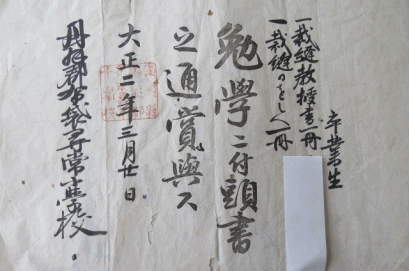 一裁縫教授書一冊
一裁縫のをしへ一冊
卒業生
勉學ニ付頭書
之通賞與ス
大正二年三月廿日
丹羽郡布袋尋常高等小学校